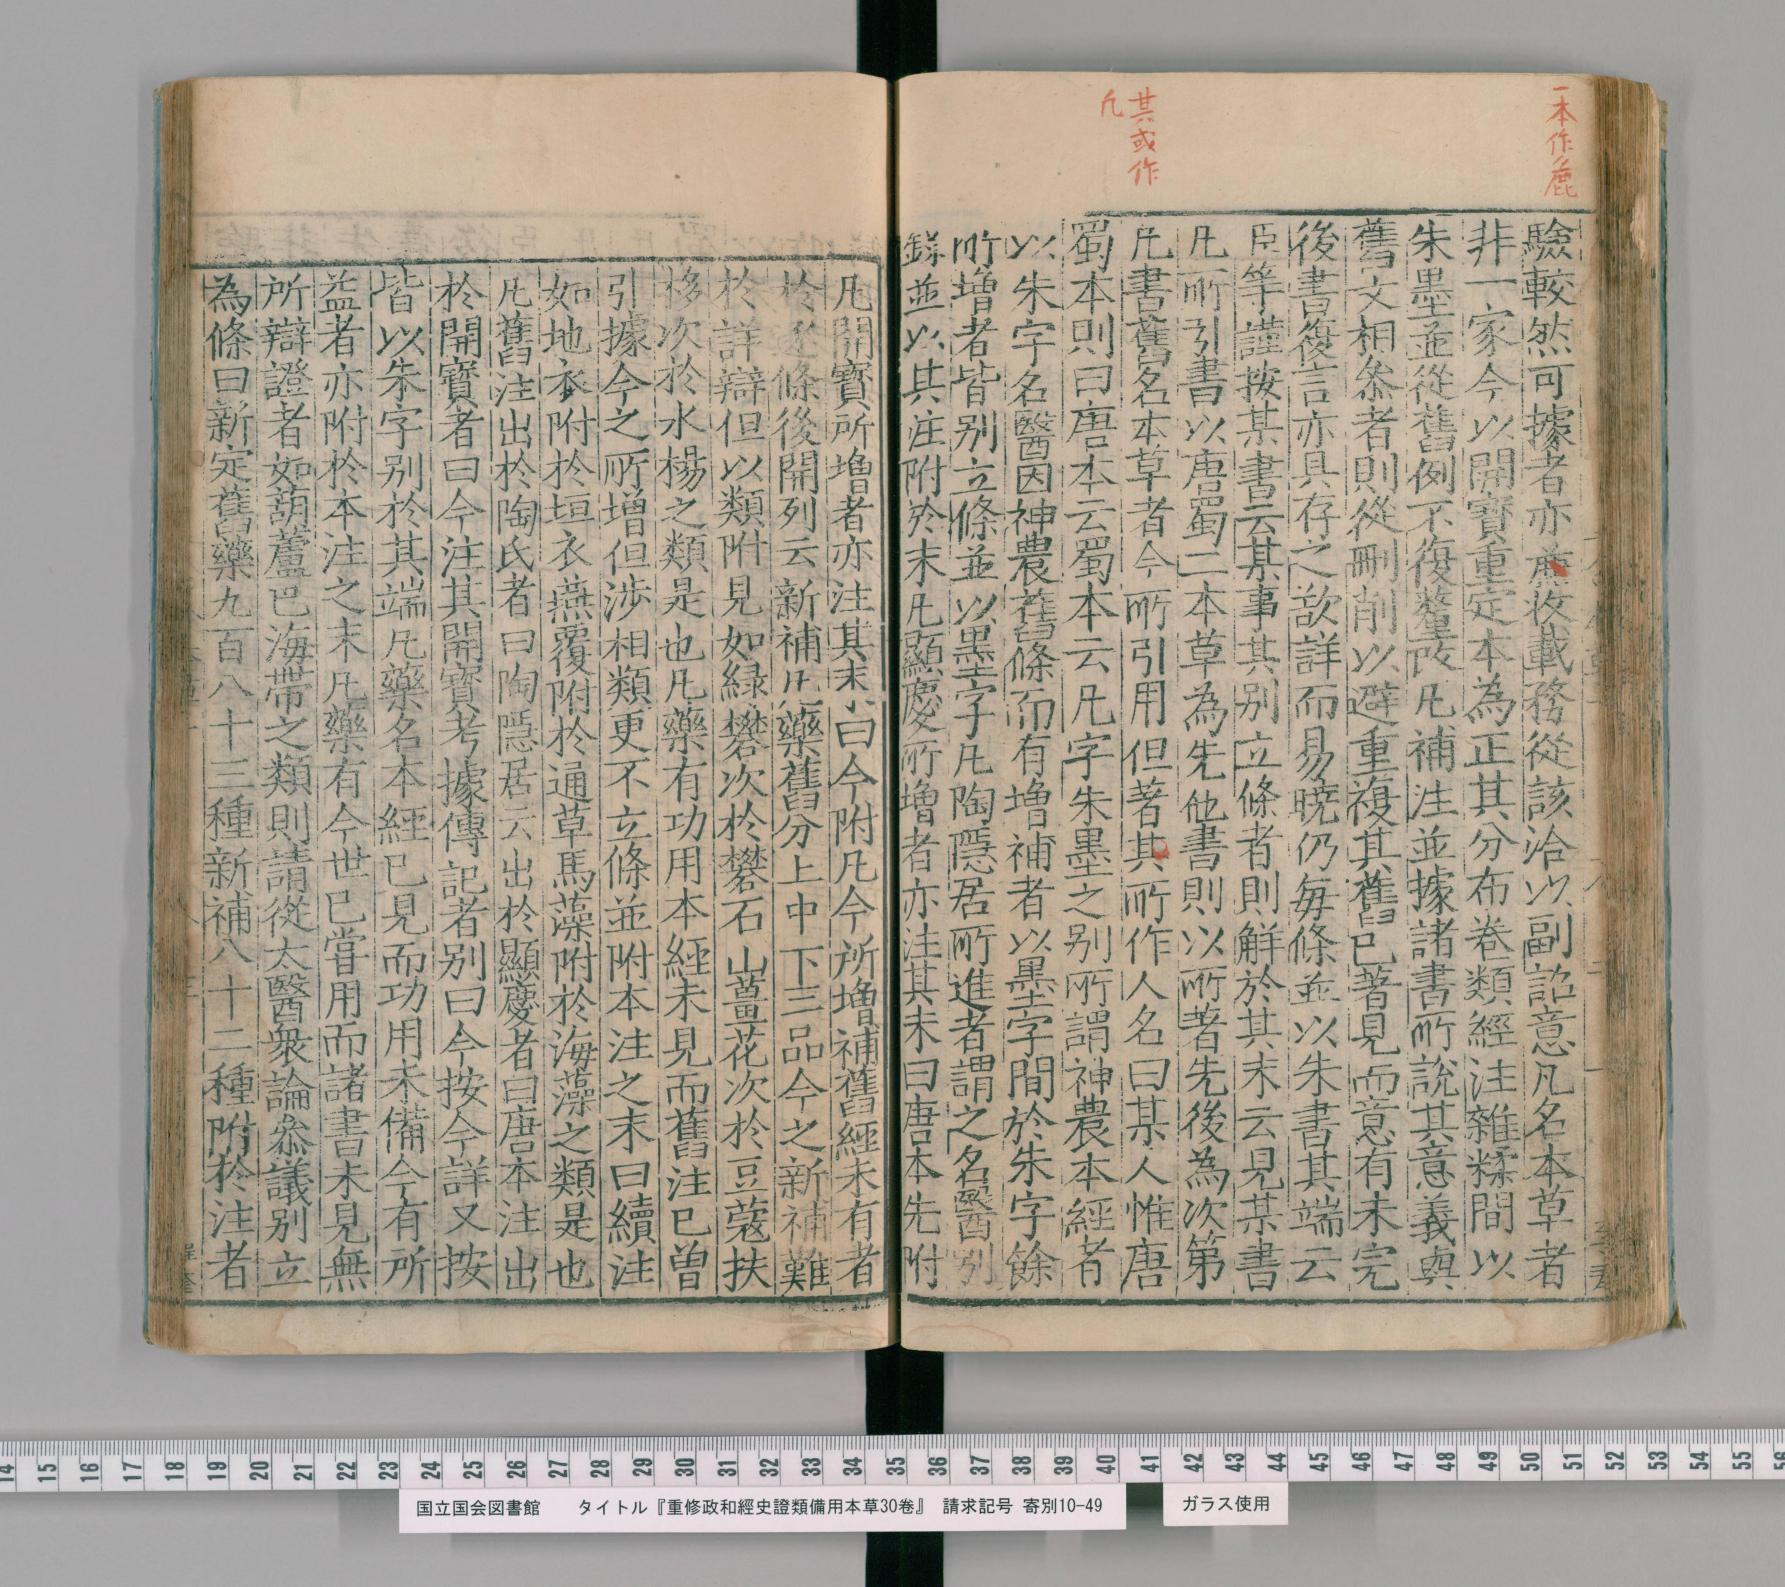 一本作麁
其或作
凡
驗較然可據者亦麁收載務從該洽以副詔意凡名本草者
非一家今以開寶重定本為正其分布卷類經注雜糅間以
朱墨並從舊例不復釐改凡補注並據諸書所說其意義與
舊文相叅者則從刪削以避重複其舊已著見而意有未完
後書復言亦具存之欲詳而易曉仍每條並以朱書其端云
臣等謹按某書云某事其別立條者則解於其末云見某書
凡所引書以唐蜀二本草為先他書則以所著先後為次第
凡書舊名本草者今所引用但著其所作人名曰某人惟唐
蜀本則曰唐本云蜀本云凡字朱墨之別所謂神農本經者
以朱字名醫因神農舊條而有增補者以墨字間於朱字餘
所增者皆別立條並以墨字凡陶隱居所進者謂之名醫別
錄並以其注附於末凡顯慶所增者亦注其末曰唐本先附
凡開寶所增者亦注其末曰今附凡今所增補舊經未有者
於逐條後開列云新補凡藥舊分上中下三品今之新補難
於詳辯但以類附見如緑礬次於礬石山薑花次於豆蔻扶
栘次於水楊之類是也凡藥有功用本經未見而舊注已曾
引據今之所增但涉相類更不立條並附本注之末曰續注
如地衣附於垣衣燕覆附於通草馬藻附於海藻之類是也
凡舊注出於陶氏者曰陶隱居云出於顯慶者曰唐本注出
於開寶者曰今注其開寶考據傳記者別曰今按今詳又按
皆以朱字別於其端凡藥名本經已見而功用未備今有所
益者亦附於本注之末凡藥有今世已嘗用而諸書未見無
所辯證者如葫蘆巴海帶之類則請從太醫衆論叅議別立
為條曰新定舊藥九百八十三種新補八十二種附於注者
国立国会図書館 タイトル『重修政和經史證類備用本草30卷』 請求記号 寄別10-49
ガラス使用
14 15 16 17 18 19 20 21 22 23 24 25 26 27 28 29 30 31 32 33 34 35 36 37 38 39 40 41 42 43 44 45 46 47 48 49 50 51 52 53 54 55 56